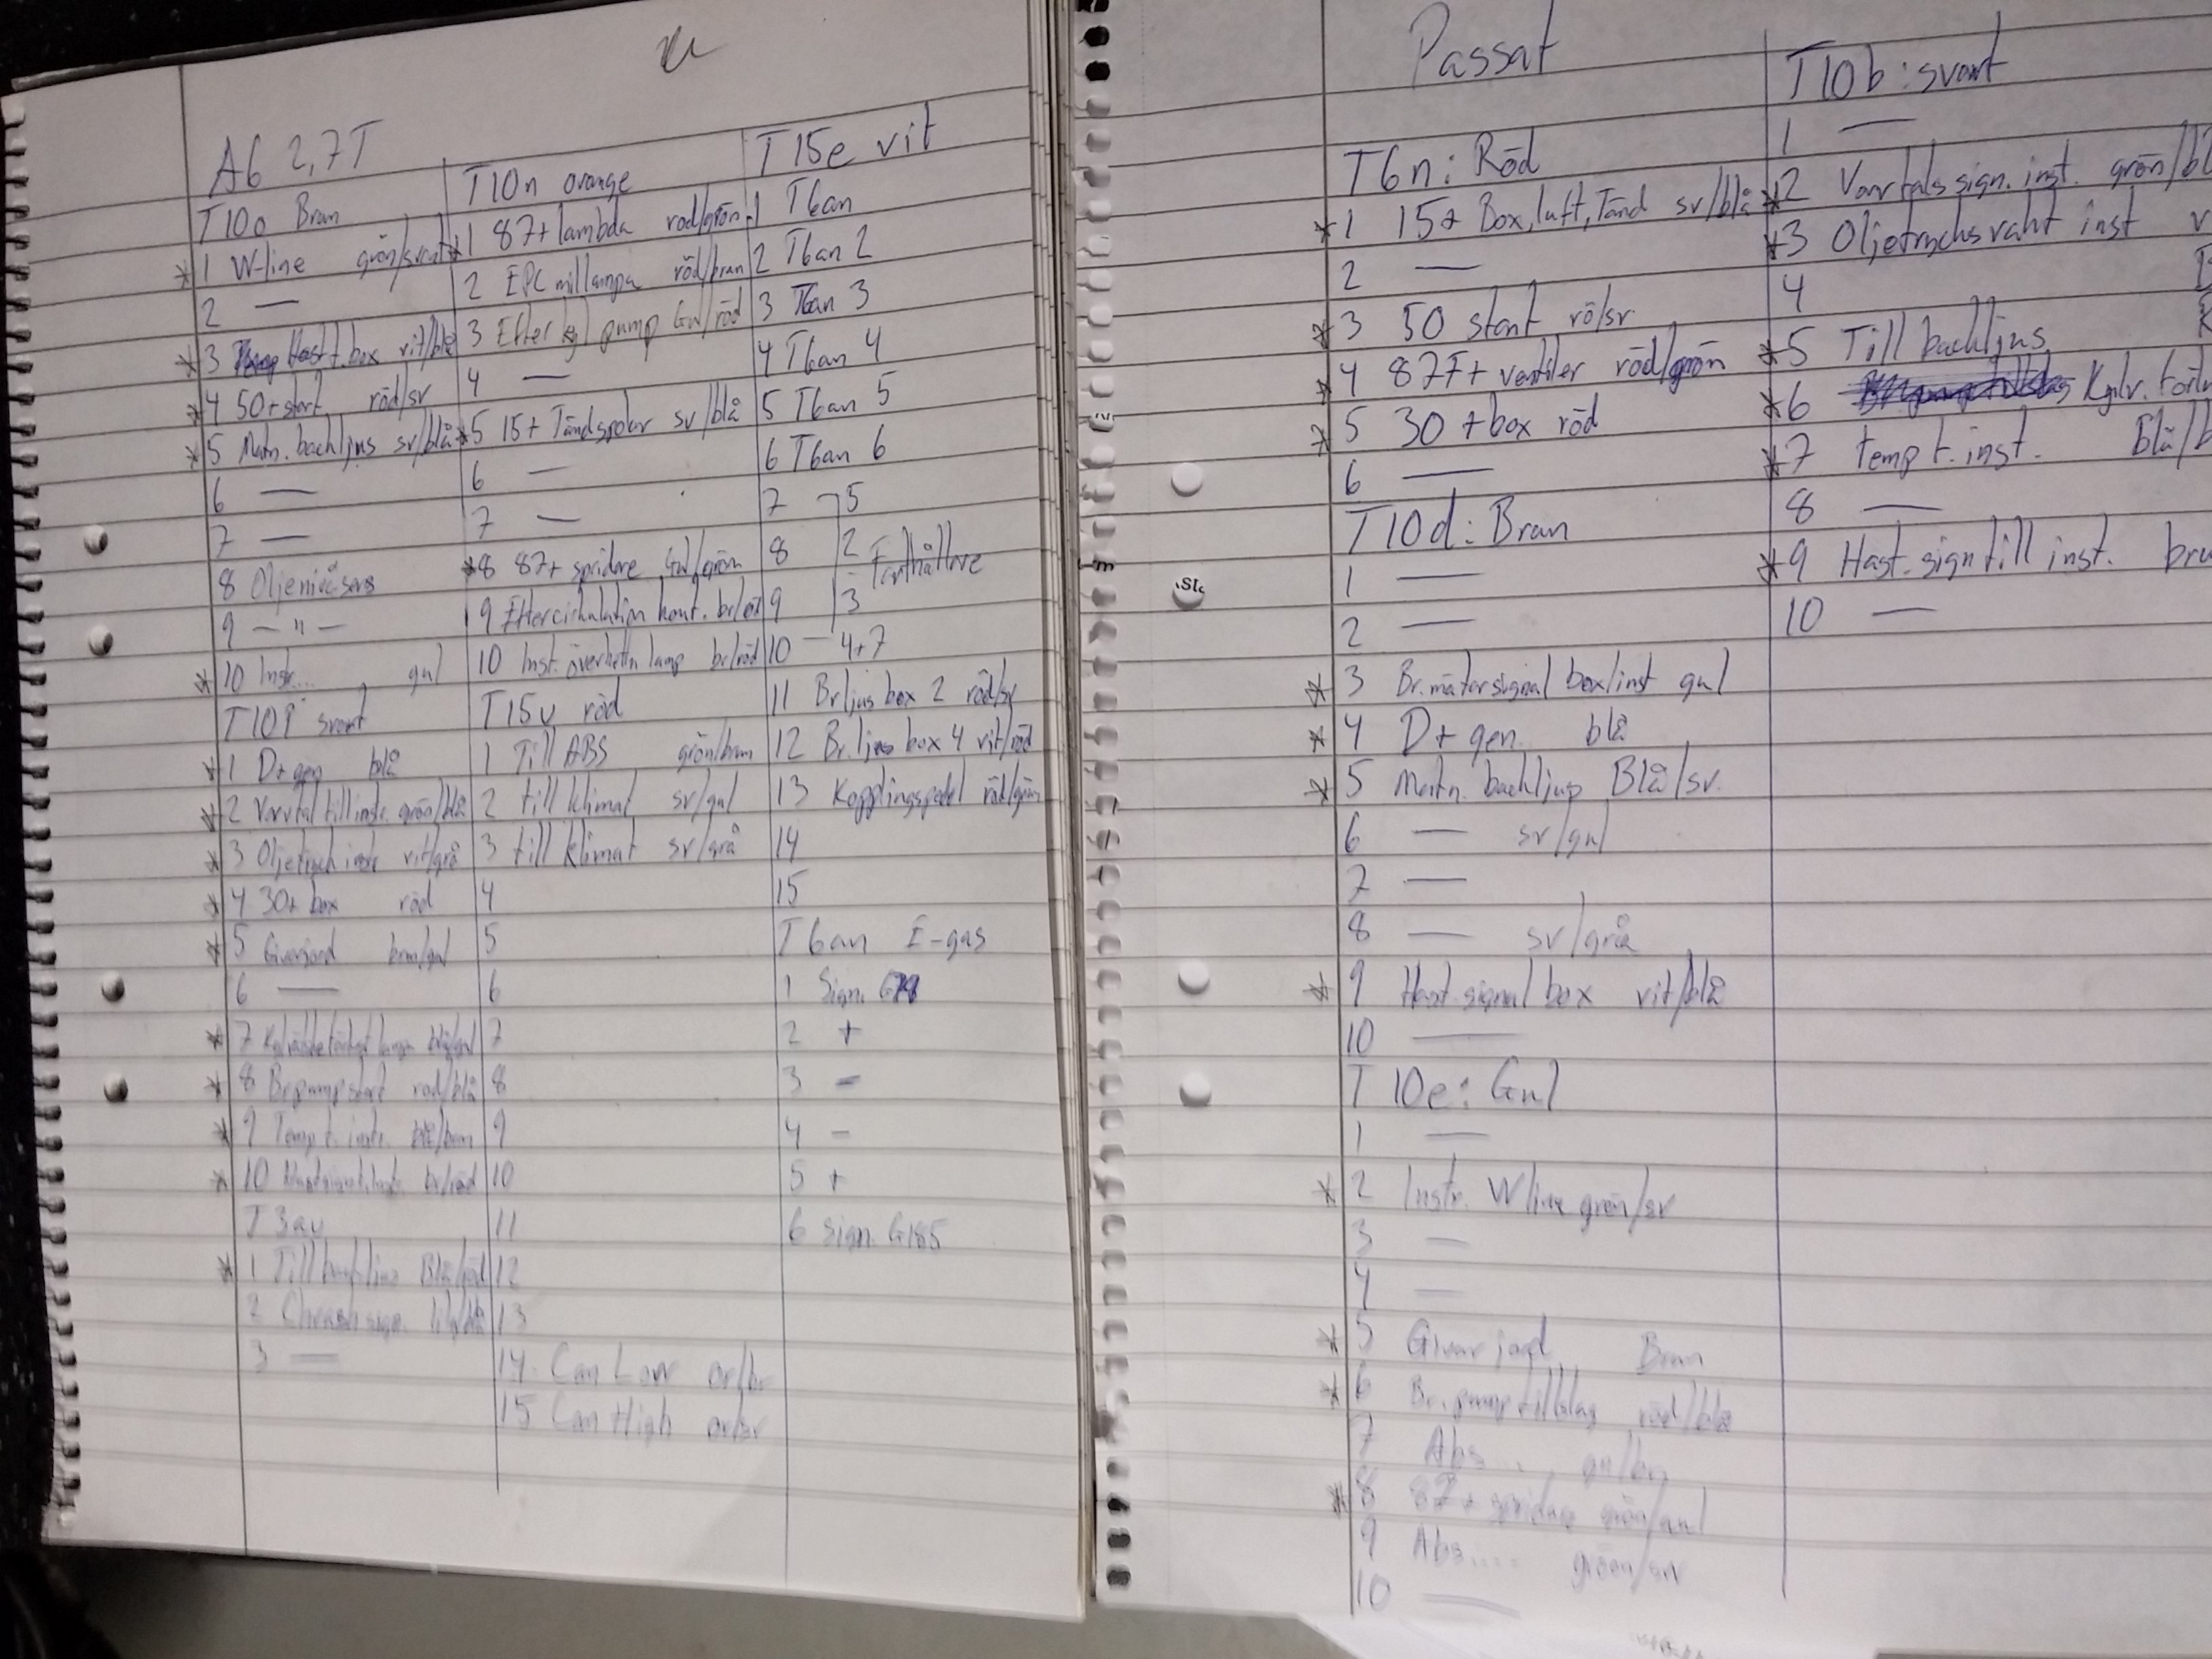 A6 2,7T
T10o Brun
*1 W-line grön/svart
2 —
*3 Hast t. box vit/blå
*4 50+start röd/sv
*5 Matn. backljus sv/blå
6 —
7 —
8 Oljenivåsens
9 — " —
*10 Instr... gul
T10P svart
*1 D+ gen blå
*2 Varvtal till instr. grön/blå
*3 Oljetryck instr vit/grå
*4 30+ box röd
*5 Givarjord brun/gul
6 —
*7 lampa blå/gul
*8 Br.pump start röd/blå
*9 Temp t. instr. blå/brun
*10 br/röd
T3au
*1 Till backljus Blå/röd
2 Chrash sign.
3 —
T10n orange
*1 87+ lambda röd/grön
2 EPC mil lampa röd/brun
3 Efter kyl pump Gul/röd
4 —
*5 15+ Tändspolar sv/blå
6 —
7 —
*8 87+ spridare Gul/grön
9 Eftercirkulation kont.
10 Inst. överhettn lamp br/röd
T15v röd
1 Till ABS grön/brun
2 till klimat sv/gul
3 till klimat sv/grå
4
5
6
7
8
9
10
11
12
13
14 Can Low or/br
15 Can High or/sv
T15e vit
1 T6an
2 T6an 2
3 T6an 3
4 T6an 4
5 T6an 5
6 T6an 6
7 5
8 2 Farthållare
9 3
10 — 4+7
11 Br ljus box 2 röd/sv
12 Br. ljus box 4 vit/röd
13 Kopplingspedal röd/grön
14
15
T6an E-gas
1 Sign. G79
2 +
3 -
4 -
5 +
6 Sign. G185
Passat
T6n: Röd
*1 15+ Box, luft, Tänd sv/blå
2 —
*3 50 start rö/sv
*4 87F+ ventiler röd/grön
*5 30 + box röd
6 —
T10d: Brun
1 —
2 —
*3 Br.mätarsignal box/inst gul
*4 D+ gen. blå
*5 Matn. backljus Blå/sv.
6 — sv/gul
7 —
8 — sv/grå
*9 Hast.signal box vit/blå
10 —
T10e: Gul
1 —
*2 Instr. W line grön/sv
3 —
4 —
*5 Givar jord Brun
*6 Br.pump tillslag röd/blå
7 Abs... gul/br
*8 87+ spridare grön/gul
9 Abs.... grön/sv
10 —
T10b: svart
1 —
*2 Varvtalssign. inst. grön/bl
*3 Oljetrycksvakt inst v
4
*5 Till backljus
*6 Kylv.
*7 Temp t. inst. Blå/b
8 —
*9 Hast. sign till inst. bru
10 —